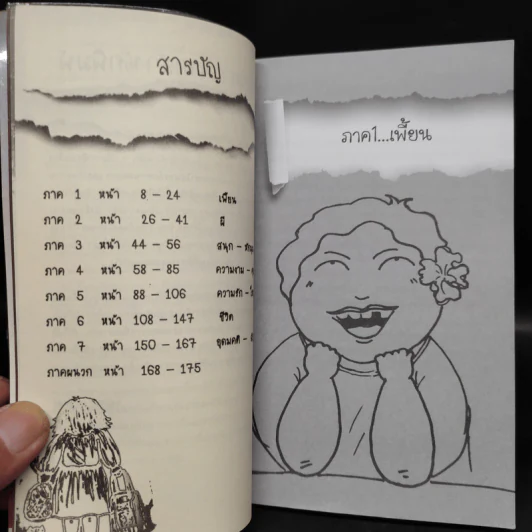 สารบัญ
ภาค 1 หน้า 8 - 24 เพี้ยน
ภาค 2 หน้า 26 - 41 ผี
ภาค 3 หน้า 44 - 56 สนุก -
ภาค 4 หน้า 58 - 85 ความงาม -
ภาค 5 หน้า 88 - 106 ความรัก -
ภาค 6 หน้า 108 - 147 ชีวิต
ภาค 7 หน้า 150 - 167 อุดมคติ -
ภาคผนวก หน้า 168 - 175
ภาค1...เพี้ยน